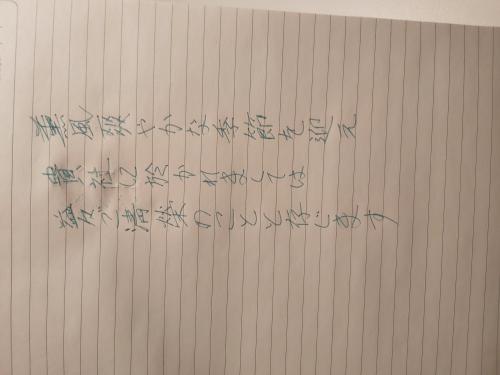 薫風緩やかな季節を迎え
貴社に於かれましては
益々ご清栄のことと存じます